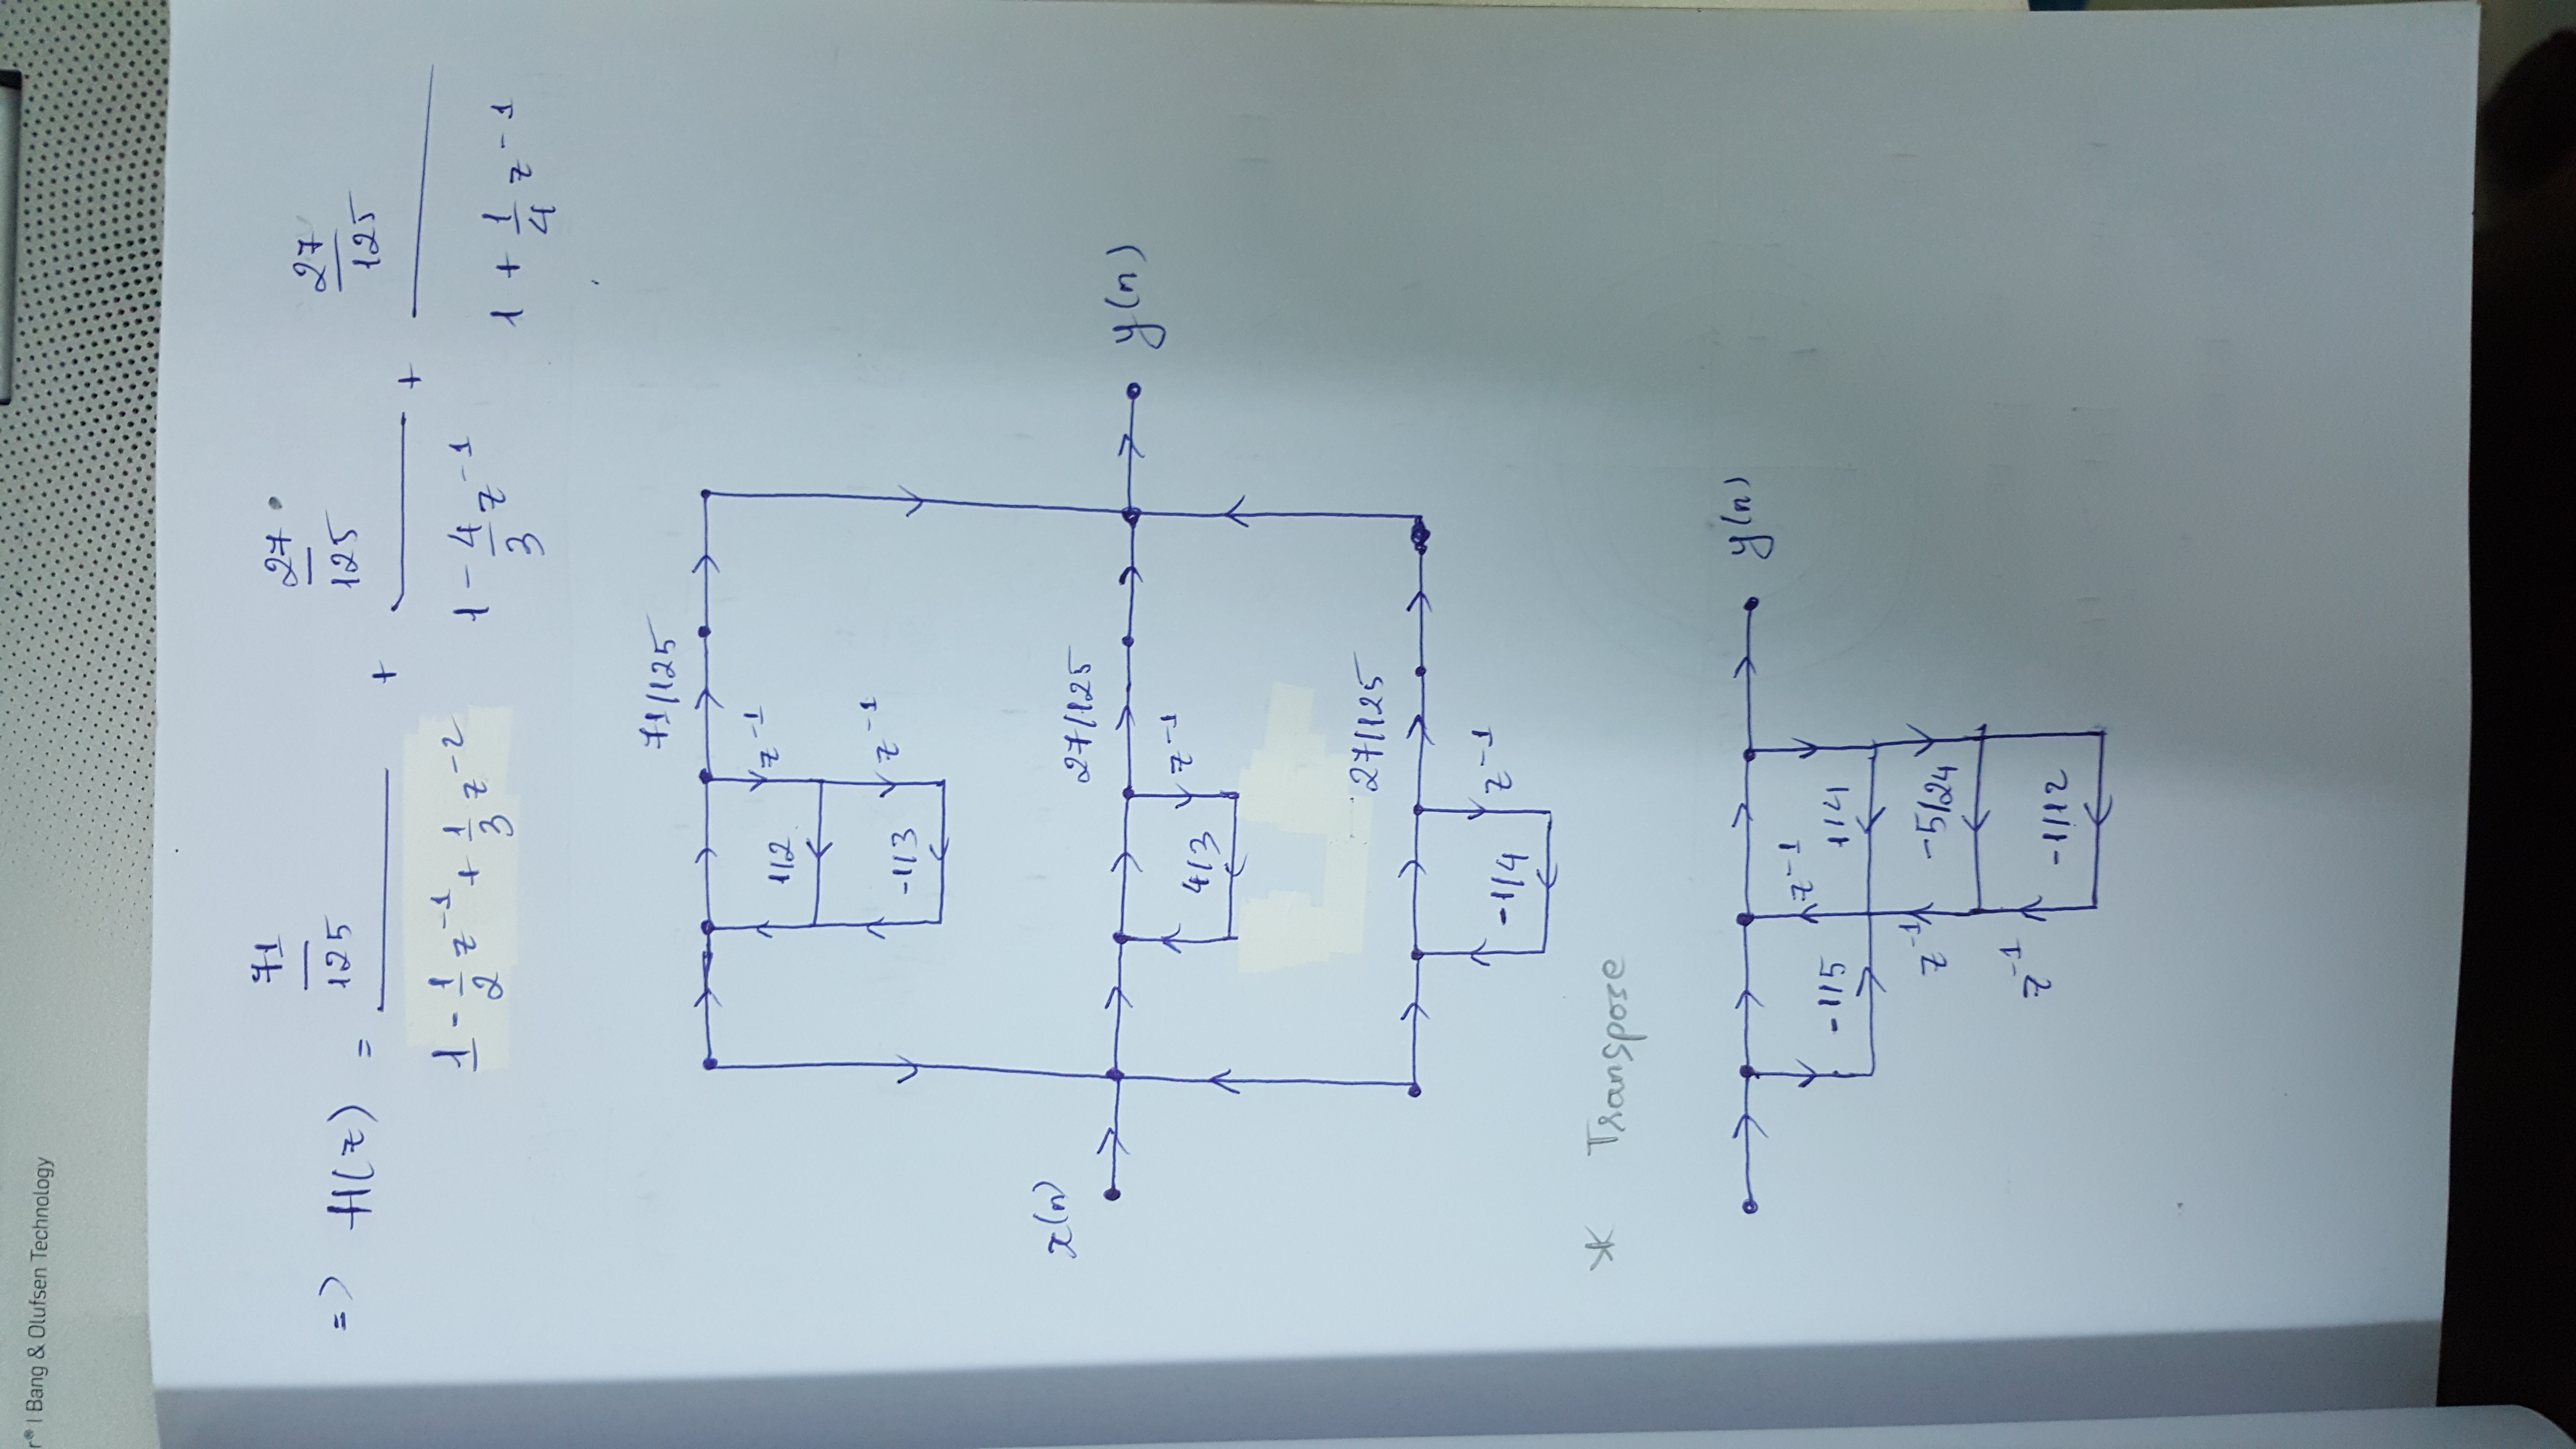 r® | Bang & Olufsen Technology
=> H(z) = 71/125 / (1 - 1/2 z^-1 + 1/3 z^-2) + 27/125 / (1 - 4/3 z^-1) + 27/125 / (1 + 1/4 z^-1)
71/125
z^-1
1/2
z^-1
-1/3
x(n)
27/125
y(n)
z^-1
4/3
27/125
z^-1
-1/4
* Transpose
y(n)
z^-1
-1/5 1/4
z^-1 -5/24
z^-1
-1/12